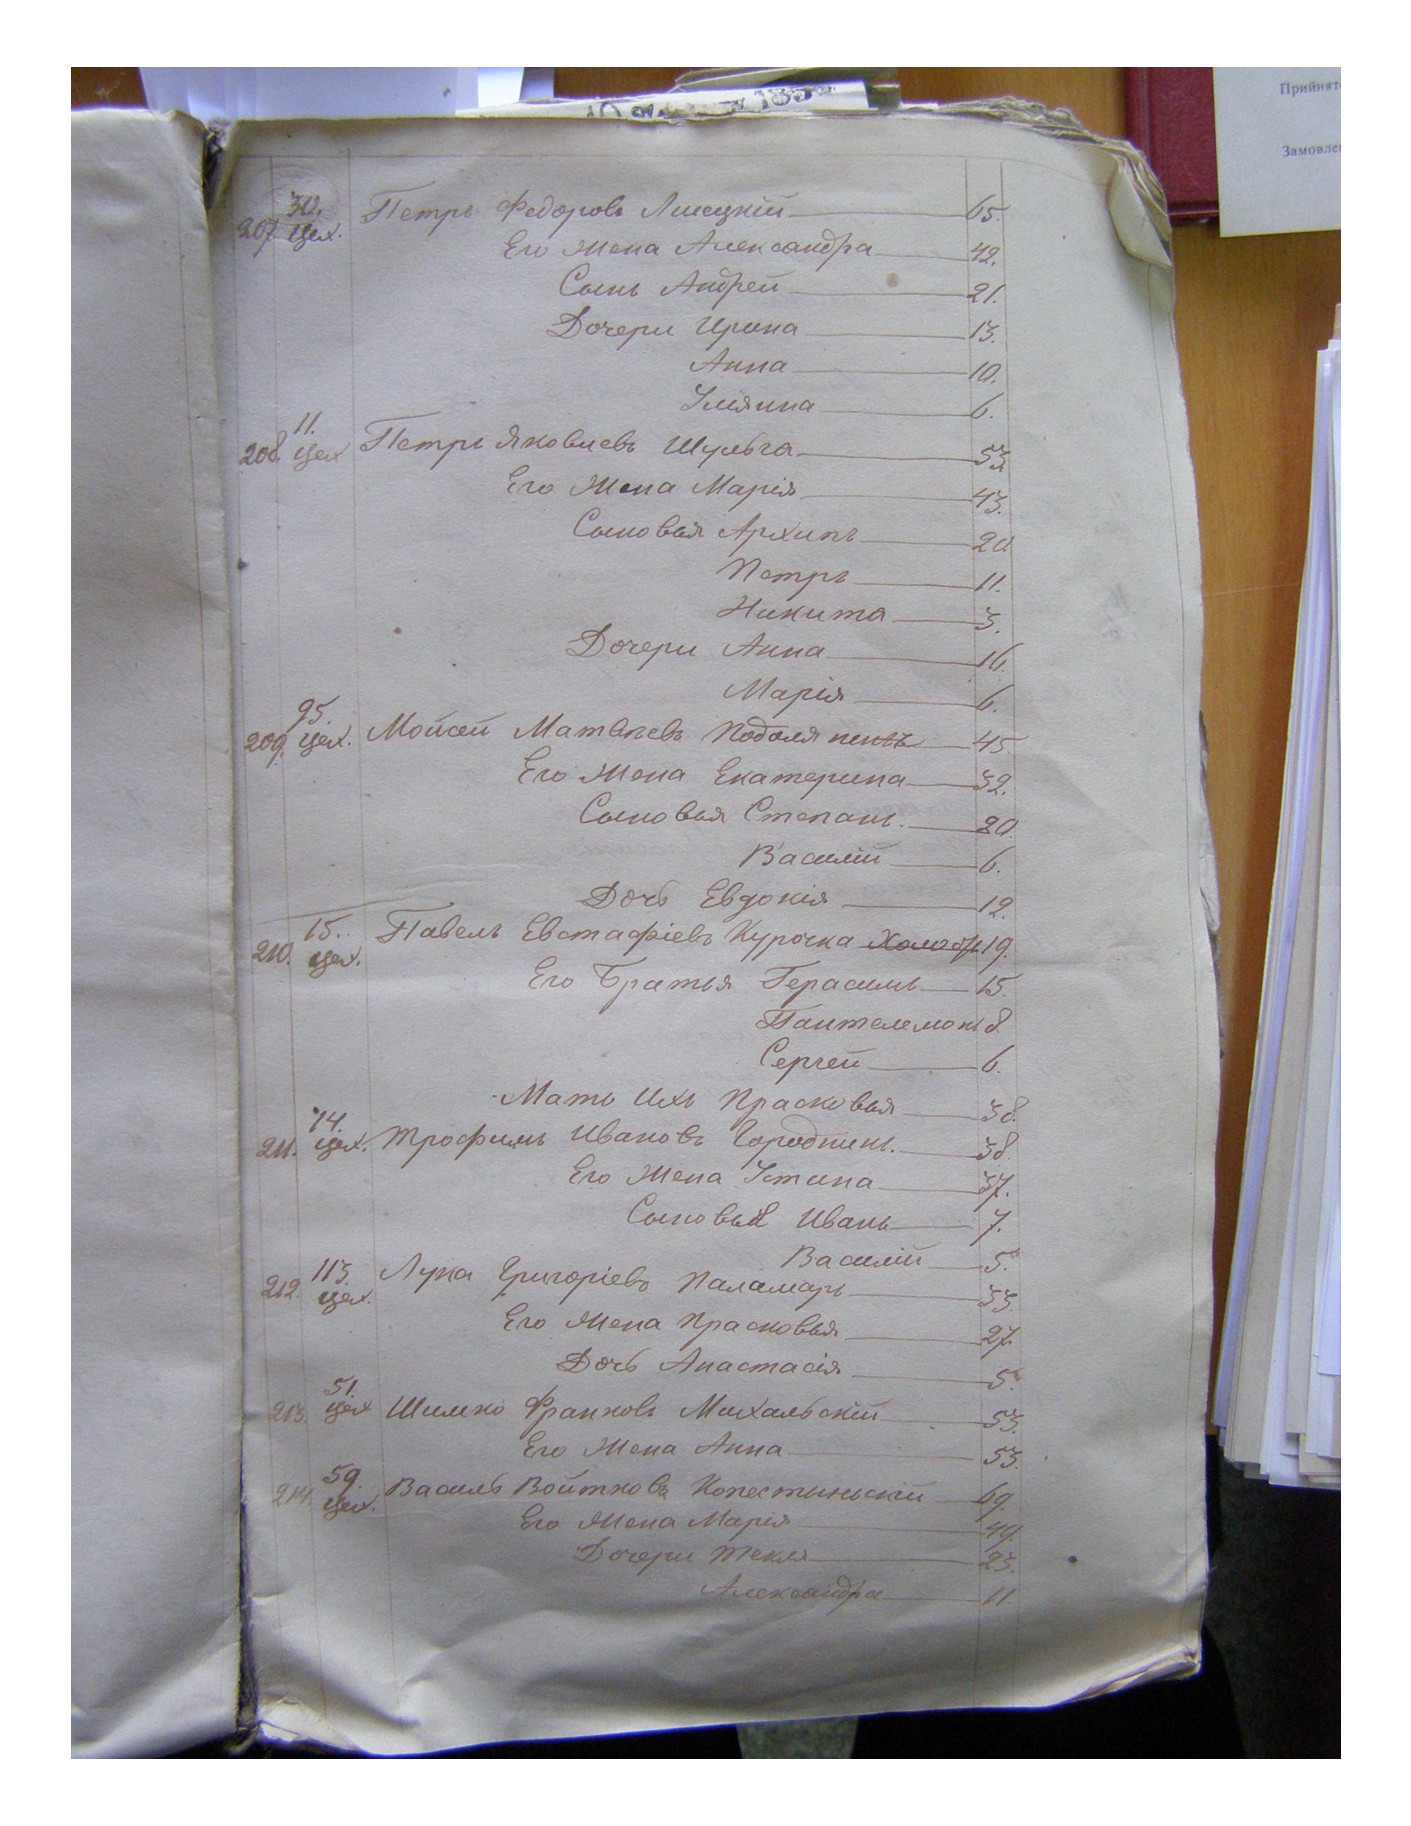 1852
Прийнят
Замовле
30.
207. цех. Петръ Федоровъ Липецкій 65.
Его Жена Александра 42.
Сынъ Андрей 21.
Дочери Ирина 13.
Анна 10.
Ульяна 6.
11.
208. цех Петръ Яковлевъ Шульга 53.
Его Жена Марія 43.
Сыновья Архипъ 20
Петръ 11.
Никита 3.
Дочери Анна 16.
Марія 6.
95.
209. цех. Мойсей Матвѣевъ 45.
Его Жена Екатерина 32.
Сыновья Степанъ. 20.
Василій 6.
Дочь Евдокія 12.
15.
210. цех. Павелъ Евстафіевъ Курочка 19.
Его Братья Герасимъ 15.
Пантелемонъ 8.
Сергей 6.
Мать Ихъ Прасковья 38.
14.
211. цех. Трофимъ Ивановъ 38.
Его Жена Устина 37.
Сыновья Иванъ 7.
Василій 5.
113.
212. цех. Лука Григоріевъ Паламарь 33.
Его Жена Прасковья 27.
Дочь Анастасія 5.
51.
213. цех Шимко Франковъ Михальскій 53.
Его Жена Анна 53.
59.
214. цех. Василь Войтковъ 69.
Его Жена Марія 49.
Дочери Текля 23.
Александра 11.